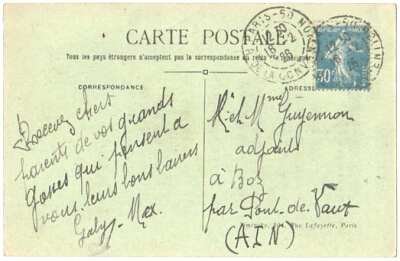 CARTE POSTALE
Tous les pays étrangers n'acceptent pas la correspondance au recto
CORRESPONDANCE
ADRESSE
Recevez chers
parents de vos grands
gosses qui pensent a
vous leurs bons baisers
Gaby - Max.
PARIS - 50
30c
Mme Guyennon
adjoints
à Boz
par Pont-de-Vaux
(AIN)
Rue Lafayette, Paris